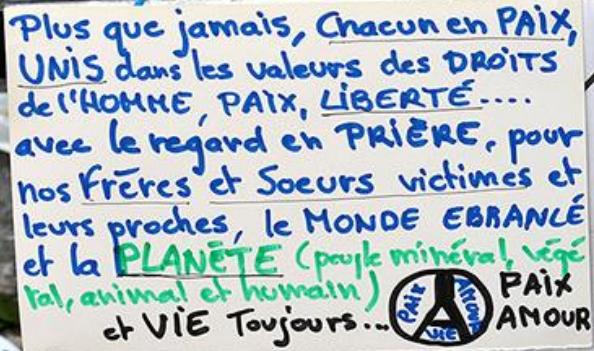 Plus que jamais, Chacun en PAIX,
UNIS dans les valeurs des DROITS
de l'HOMME, PAIX, LIBERTÉ....
avec le regard en PRIÈRE, pour
nos Frères et Soeurs victimes et
leurs proches, le MONDE EBRANLÉ
et la PLANÈTE (peuple minéral, végé
tal, animal et humain)
et VIE Toujours...
PAIX
AMOUR
VIE
PAIX
AMOUR